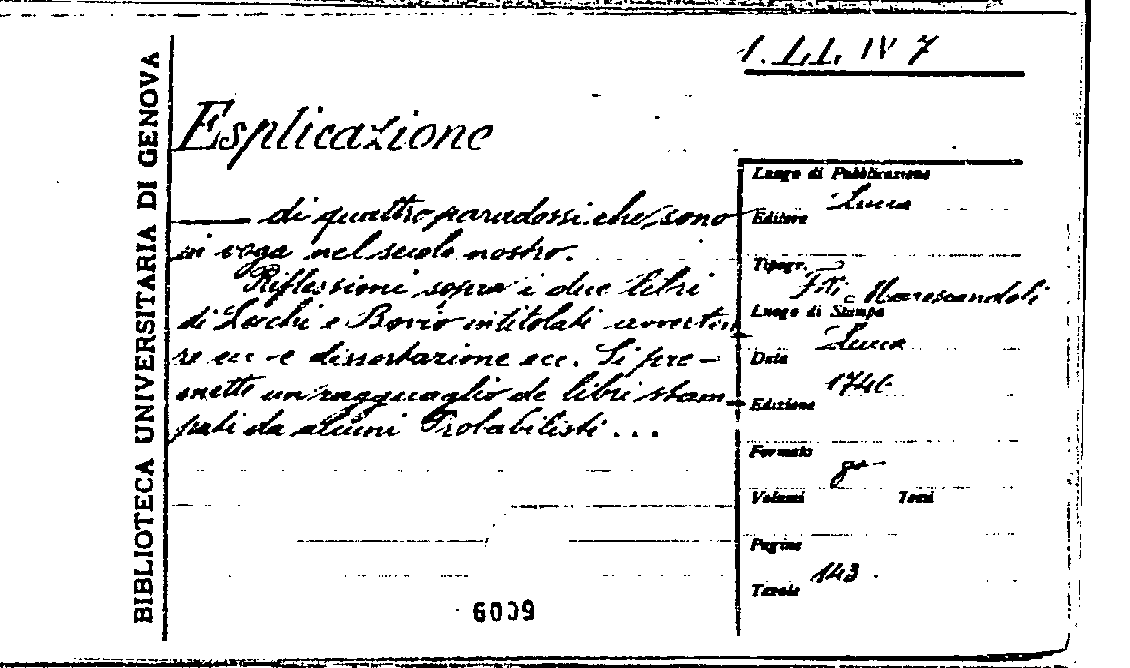 BIBLIOTECA UNIVERSITARIA DI GENOVA
1. LL. IV 7
Esplicazione
di quattro paradossi che sono
in voga nel secolo nostro.
Riflessioni sopra i due libri
di Lecchi e Bovio intitolati avverten
ze ecc e dissertazione ecc. Si pre-
mette un ragguaglio de libri stam-
pati da alcuni Probabilisti ...
6009
Luogo di Pubblicazione
Lucca
Editore
Tipogr.
F.ti Marescandoli
Luogo di Stampa
Lucca
Data
1746
Edizione
Formato
8°
Volumi Tomi
Pagine
143
Tavole